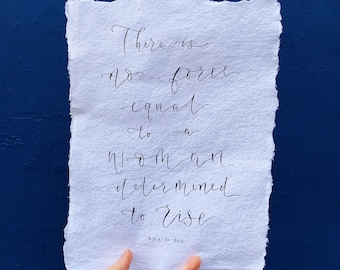 There is
no force
equal
to a
woman
determined
to rise